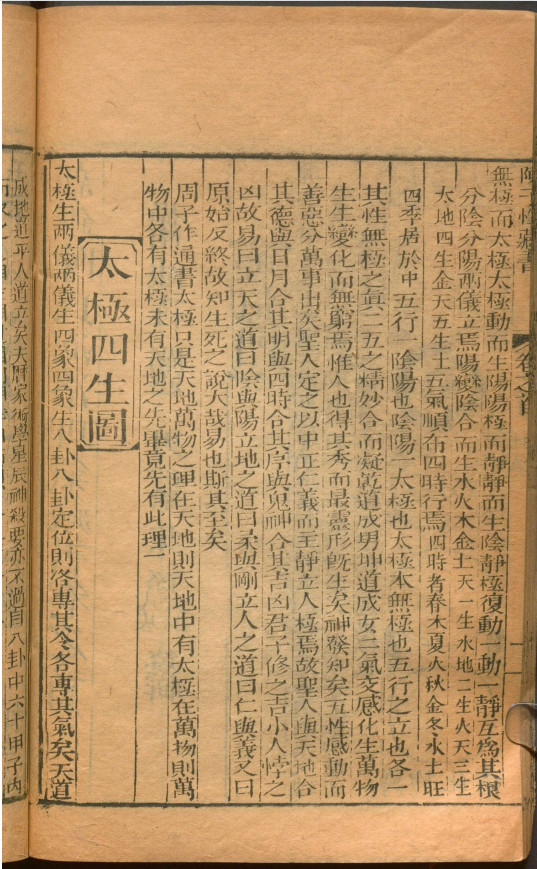 陳子性藏書 卷之首
無極而太極太極動而生陽陽極而靜靜而生陰靜極復動一動一靜互爲其根
分陰分陽兩儀立焉陽變陰合而生水火木金土天一生水地二生火天三生
木地四生金天五生土五氣順布四時行焉四時者春木夏火秋金冬水土旺
四季居於中五行一陰陽也陰陽一太極也太極本無極也五行之立也各一
其性無極之眞二五之精妙合而凝乾道成男坤道成女二氣交感化生萬物
生生變化而無窮焉惟人也得其秀而最靈形旣生矣神發知矣五性感動而
善惡分萬事出矣聖人定之以中正仁義而主靜立人極焉故聖人與天地合
其德與日月合其明與四時合其序與鬼神合其吉凶君子修之吉小人悖之
凶故易曰立天之道曰陰與陽立地之道曰柔與剛立人之道曰仁與義又曰
原始反終故知生死之說大哉易也斯其至矣
周子作通書太極只是天地萬物之理在天地則天地中有太極在萬物則萬
物中各有太極未有天地之先畢竟先有此理一
太極四生圖
太極生兩儀兩儀生四象四象生八卦八卦定位則各專其令各專其氣矣天道
成地道平人道立矣夫曆家術學星辰神殺要亦不過自八卦中六十甲子內